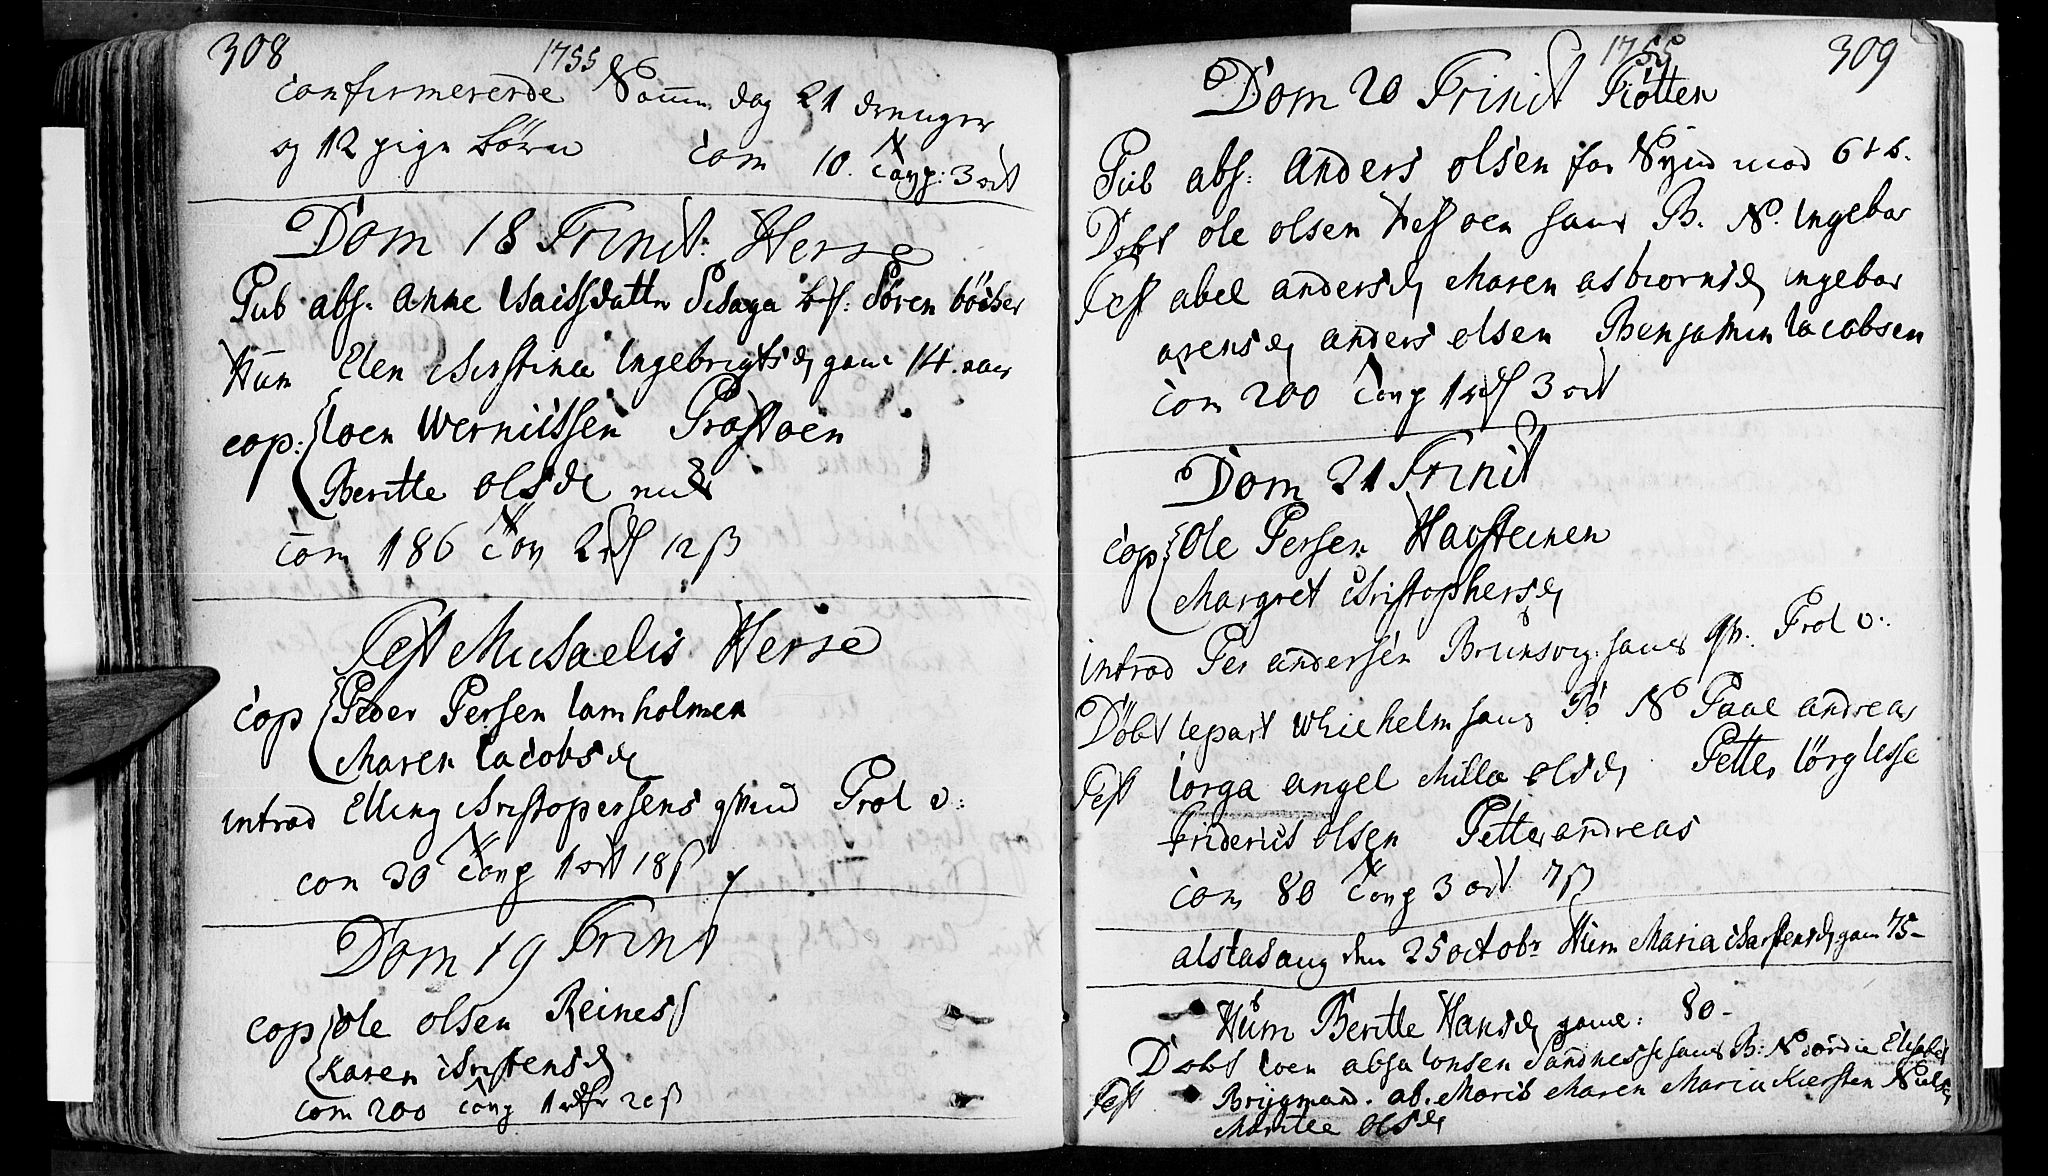 308
1755
confirmererde Nomm. dag 21 drenger
og 12 pige börn com 10. Cong: 3 ort
Dom 18 Trinit. Herre
Pub abs. Anne Isaissdatter Sisaga bes: Sören böcker
Hum Elen Christina Ingebrigtsd gaml 14. aar
cop: Joen Wernitssen Prostoen
Beritte Olsd
com 186 Cong 2 rd 12 β
Fest Michaelis Herre
cop Peder Persen lamholmen
Maren Jacobsd
introd Elling Christopersens qvind Prol v:
con 30 Cong 1 ort 18 β
Dom 19 Trinit
cop ole olsen Reines
Karen Christensd
com 200 Cong 1 ort 20 β
1755
309
Dom 20 Trinit Tiötten
Pub abs: Anders olsen for Synd mod 6t b.
Döbt ole olsen saml B. N. Ingebor
Test abel andersd Maren asbiornsd ingebor
arensd anders olsen Benjamin Jacobsen
com 200 Cong 1 rd 3 ort
Dom 21 Trinit
cop Ole Persen Havsteinen
Margret Christophersd
introd Per andersen Brunsvig qv. Prol v.
Döbt lepart Whielhelm B N Paul andreas
Test iorga angel Milla olsd Petter Jörg
Friderich olsen Petter andreas
com 80 Cong 3 ort 7 β
alstasaug den 25 octobr Hum Maria Carstensd gam 75-
Hum Beritte Hansd gaml: 80-
Döbt Joen absalonsen Sandnes B: N dordie Elisabet
Test Brygmand. ab. Moris Maren Maria Kiersten Niels
Maritte olsd